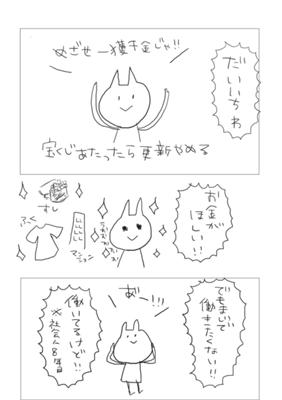 だいいちわ
めざせ一獲千金じゃ!!
宝くじあたったら更新やめる
お金が
ほしい!!
すし
ふく
マンション
でもまじで
働きたくない!!
あ゛ー!!!
働いてるけど!!
※社会人8年目